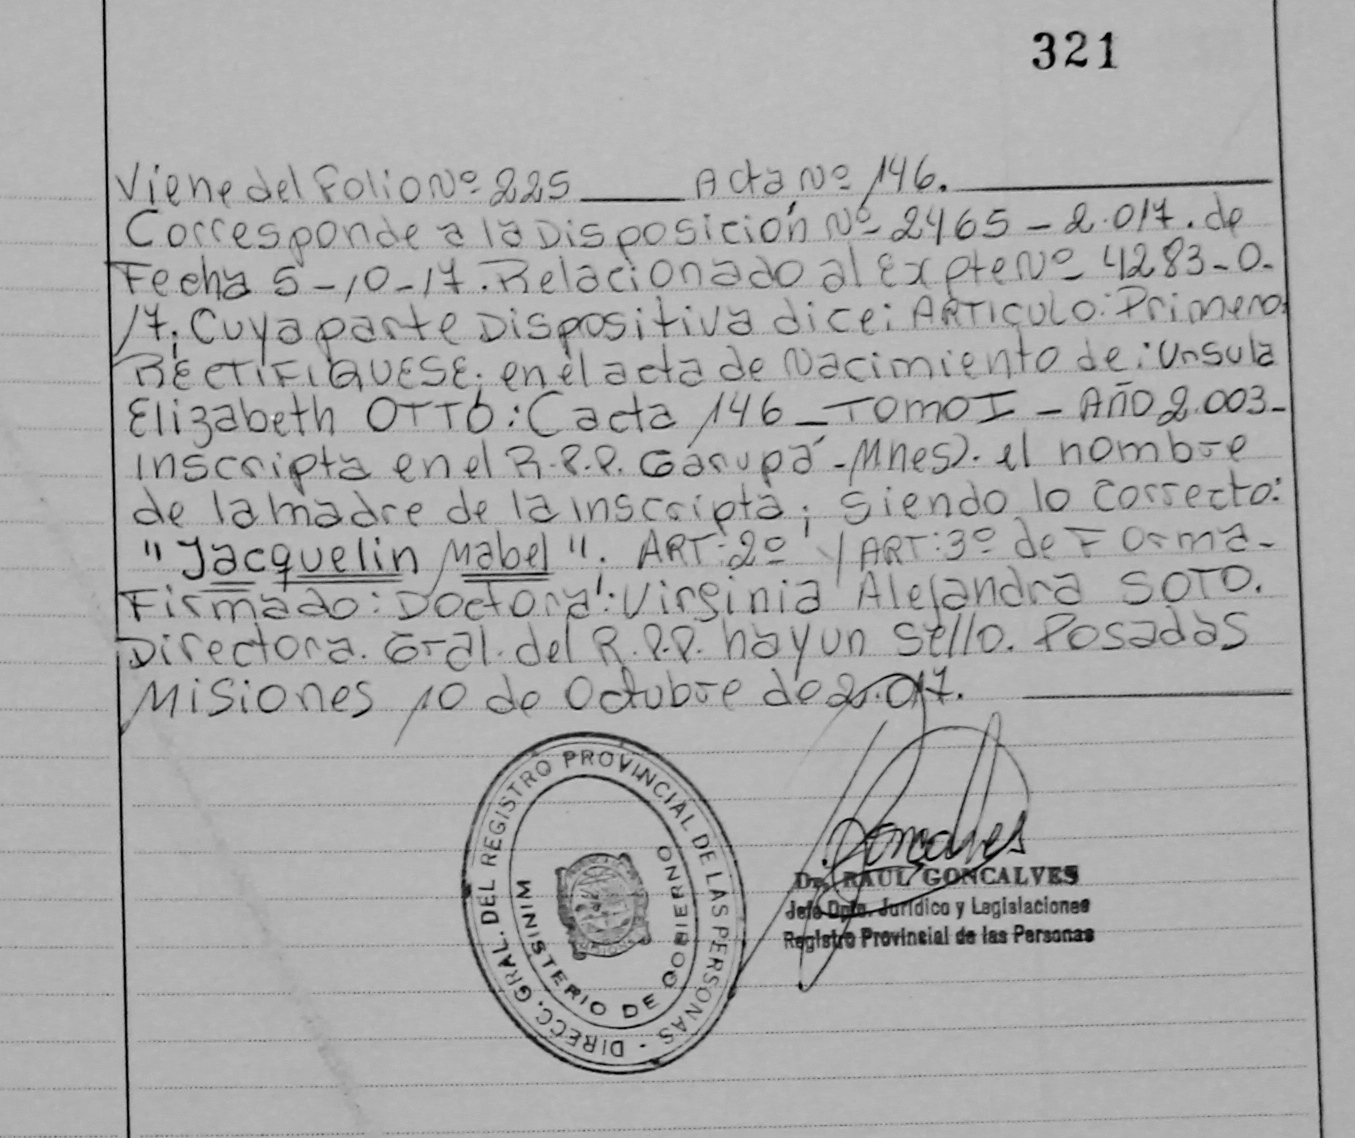 321
Viene del Folio Nº 225 ____ Acta Nº 146.
Corresponde a la Disposición Nº 2465 - 2.017. de
Fecha 5-10-17. Relacionado al Expte Nº 4283-0-
17; Cuya parte Dispositiva dice: ARTICULO: Primero:
RECTIFIQUESE; en el acta de Nacimiento de: Ursula
Elizabeth OTTO: (acta 146 - TOMO I - AÑO 2.003-
inscripta en el R.P.P. Garupá - Mnes). el nombre
de la madre de la inscripta; siendo lo correcto:
"Jacquelin Mabel". ART: 2º y ART: 3º de Forma-
Firmado: Doctora: Virginia Alejandra SOTO.
Directora. Gral. del R.P.P. hay un sello. Posadas
Misiones 10 de Octubre de 2.017.
DIRECC. GRAL. DEL REGISTRO PROVINCIAL DE LAS PERSONAS -
MINISTERIO DE GOBIERNO
Goncalves
Dr. RAUL GONCALVES
Jefe Dpto. Jurídico y Legislaciones
Registro Provincial de las Personas